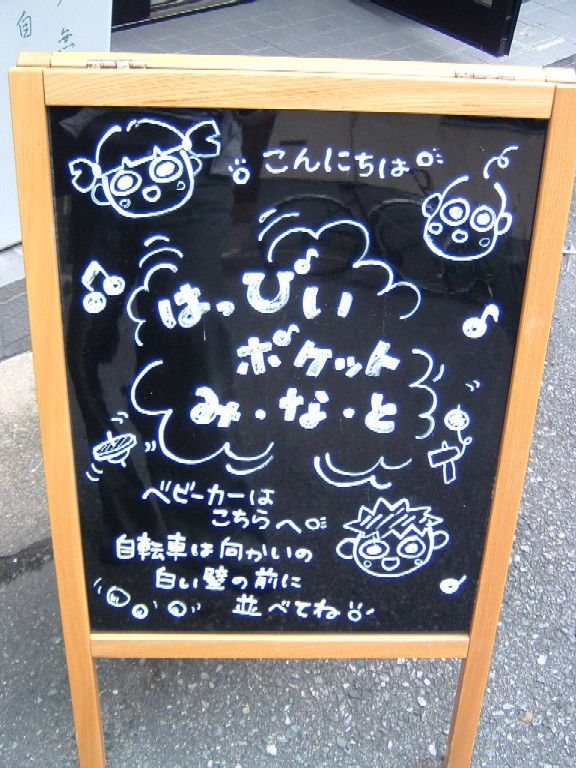 自
無
こんにちは
はっぴぃ
ポケット
み・な・と
ベビーカーは
こちらへ
自転車は向かいの
白い壁の前に
並べてね